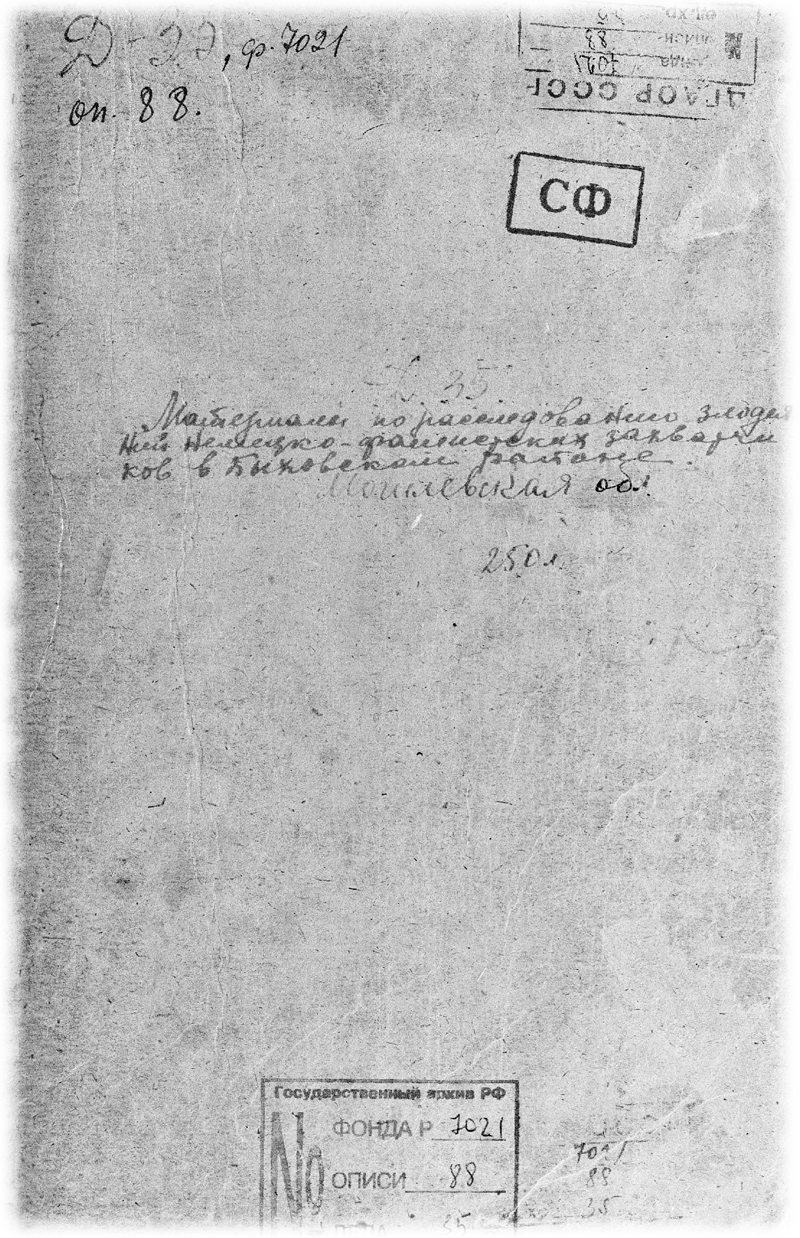 ф. 7021
оп. 88.
ЦГАОР СССР
фонда 7021
опис 88
ед. хр. 35
СФ
35
Материалы по расследованию злодея
ний немецко-фашистских захватчи
ков в Быховском районе.
Могилевская обл.
250 л.
Государственный архив РФ
№
ФОНДА Р 7021
ОПИСИ 88
35
7021
88
35